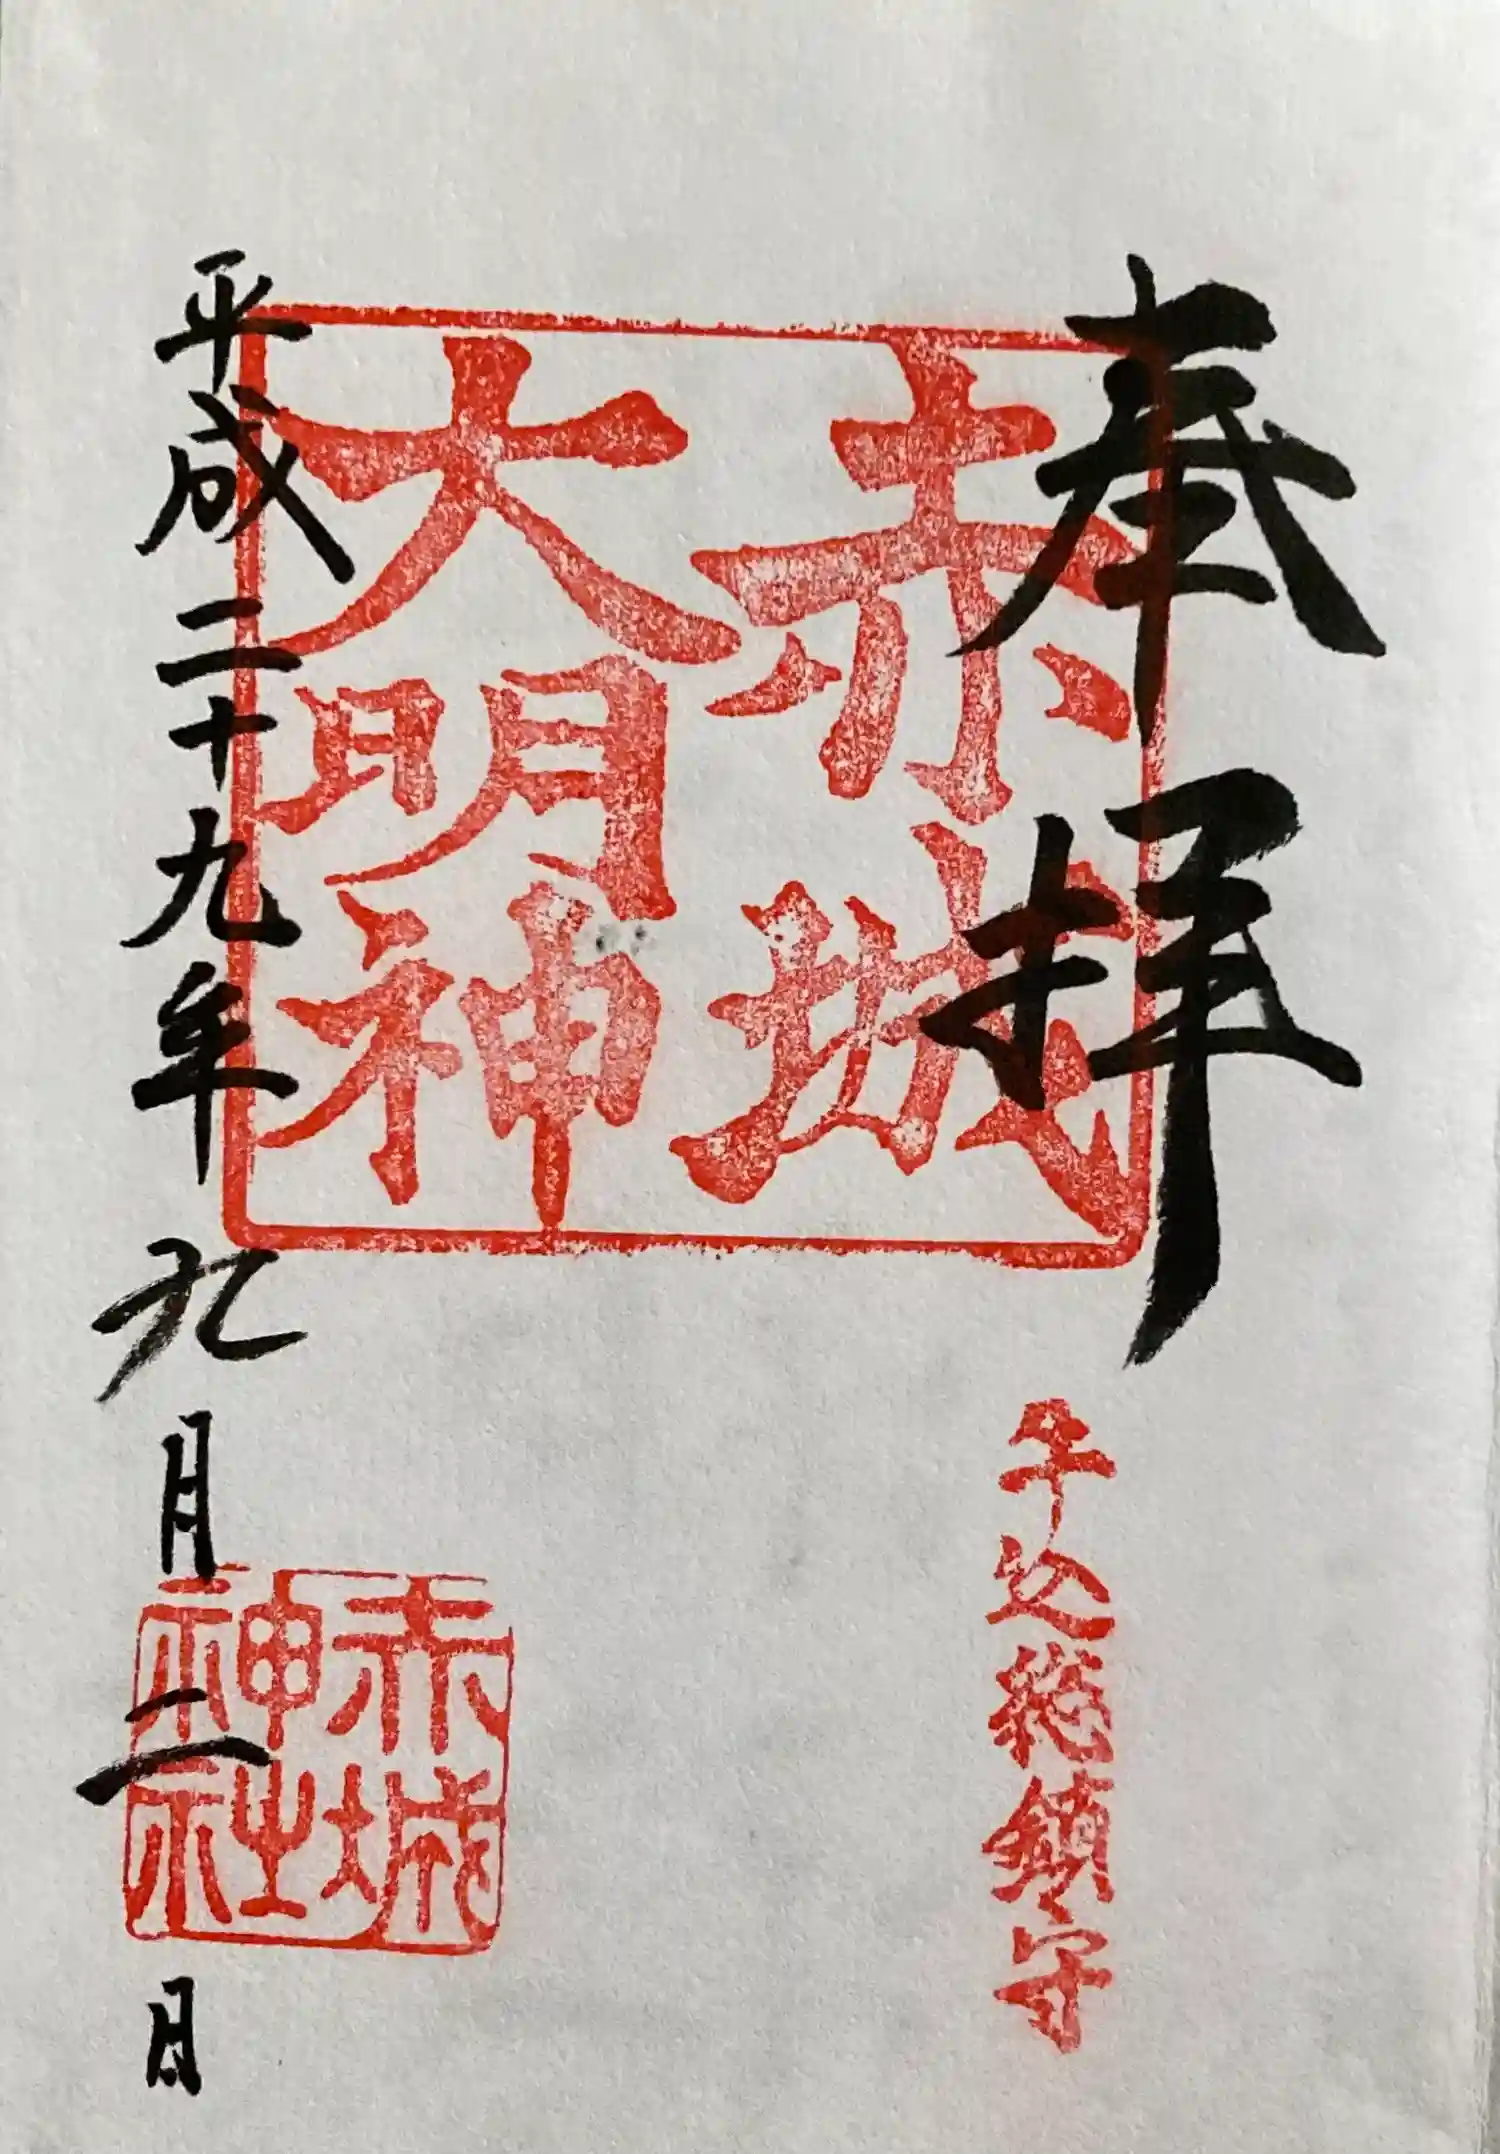 奉拝
牛込総鎮守
赤城
大明神
赤城
神社
平成二十九年九月二日